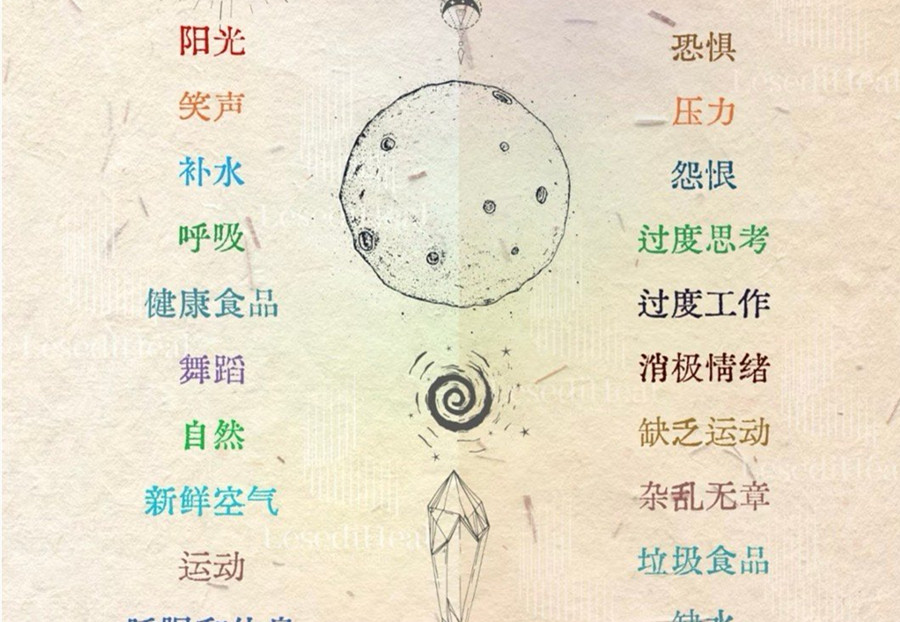 阳光
笑声
补水
呼吸
健康食品
舞蹈
自然
新鲜空气
运动
恐惧
压力
怨恨
过度思考
过度工作
消极情绪
缺乏运动
杂乱无章
垃圾食品
LesediHeal
LesediHeal
LesediHeal
LesediHeal
LesediHeal
LesediHeal